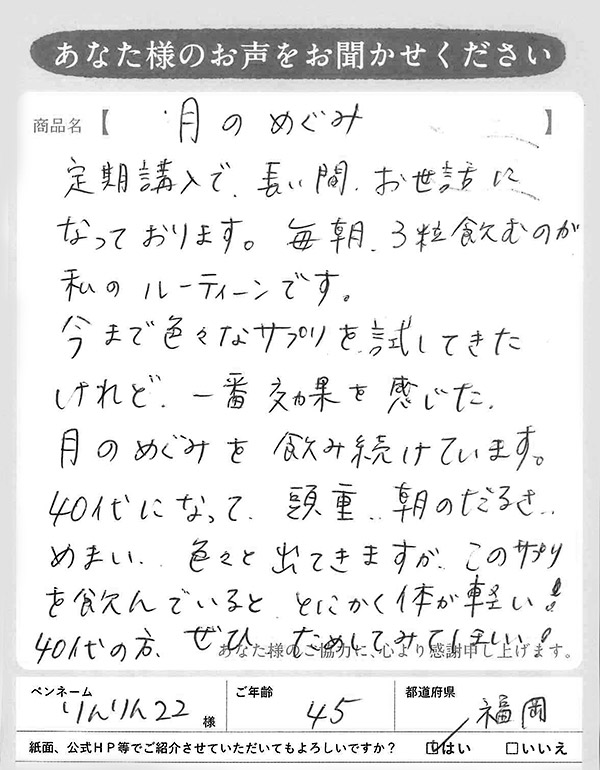 あなた様のお声をお聞かせください
商品名【 月のめぐみ 】
定期講入で、長い間、お世話に
なっております。毎朝、3粒飲むのが
私のルーティーンです。
今まで色々なサプリを試してきた
けれど、一番効果を感じた、
月のめぐみを飲み続けています。
40代になって、頭重、朝のだるさ、
めまい、色々と出てきますが、このサプリ
を飲んでいると、とにかく体が軽い!
40代の方、ぜひ、ためしてみてほしい!
あなた様のご協力に、心より感謝申し上げます。
ペンネーム りんりん22 様 ご年齢 45 都道府県 福岡
紙面、公式HP等でご紹介させていただいてもよろしいですか? ☑はい □いいえ